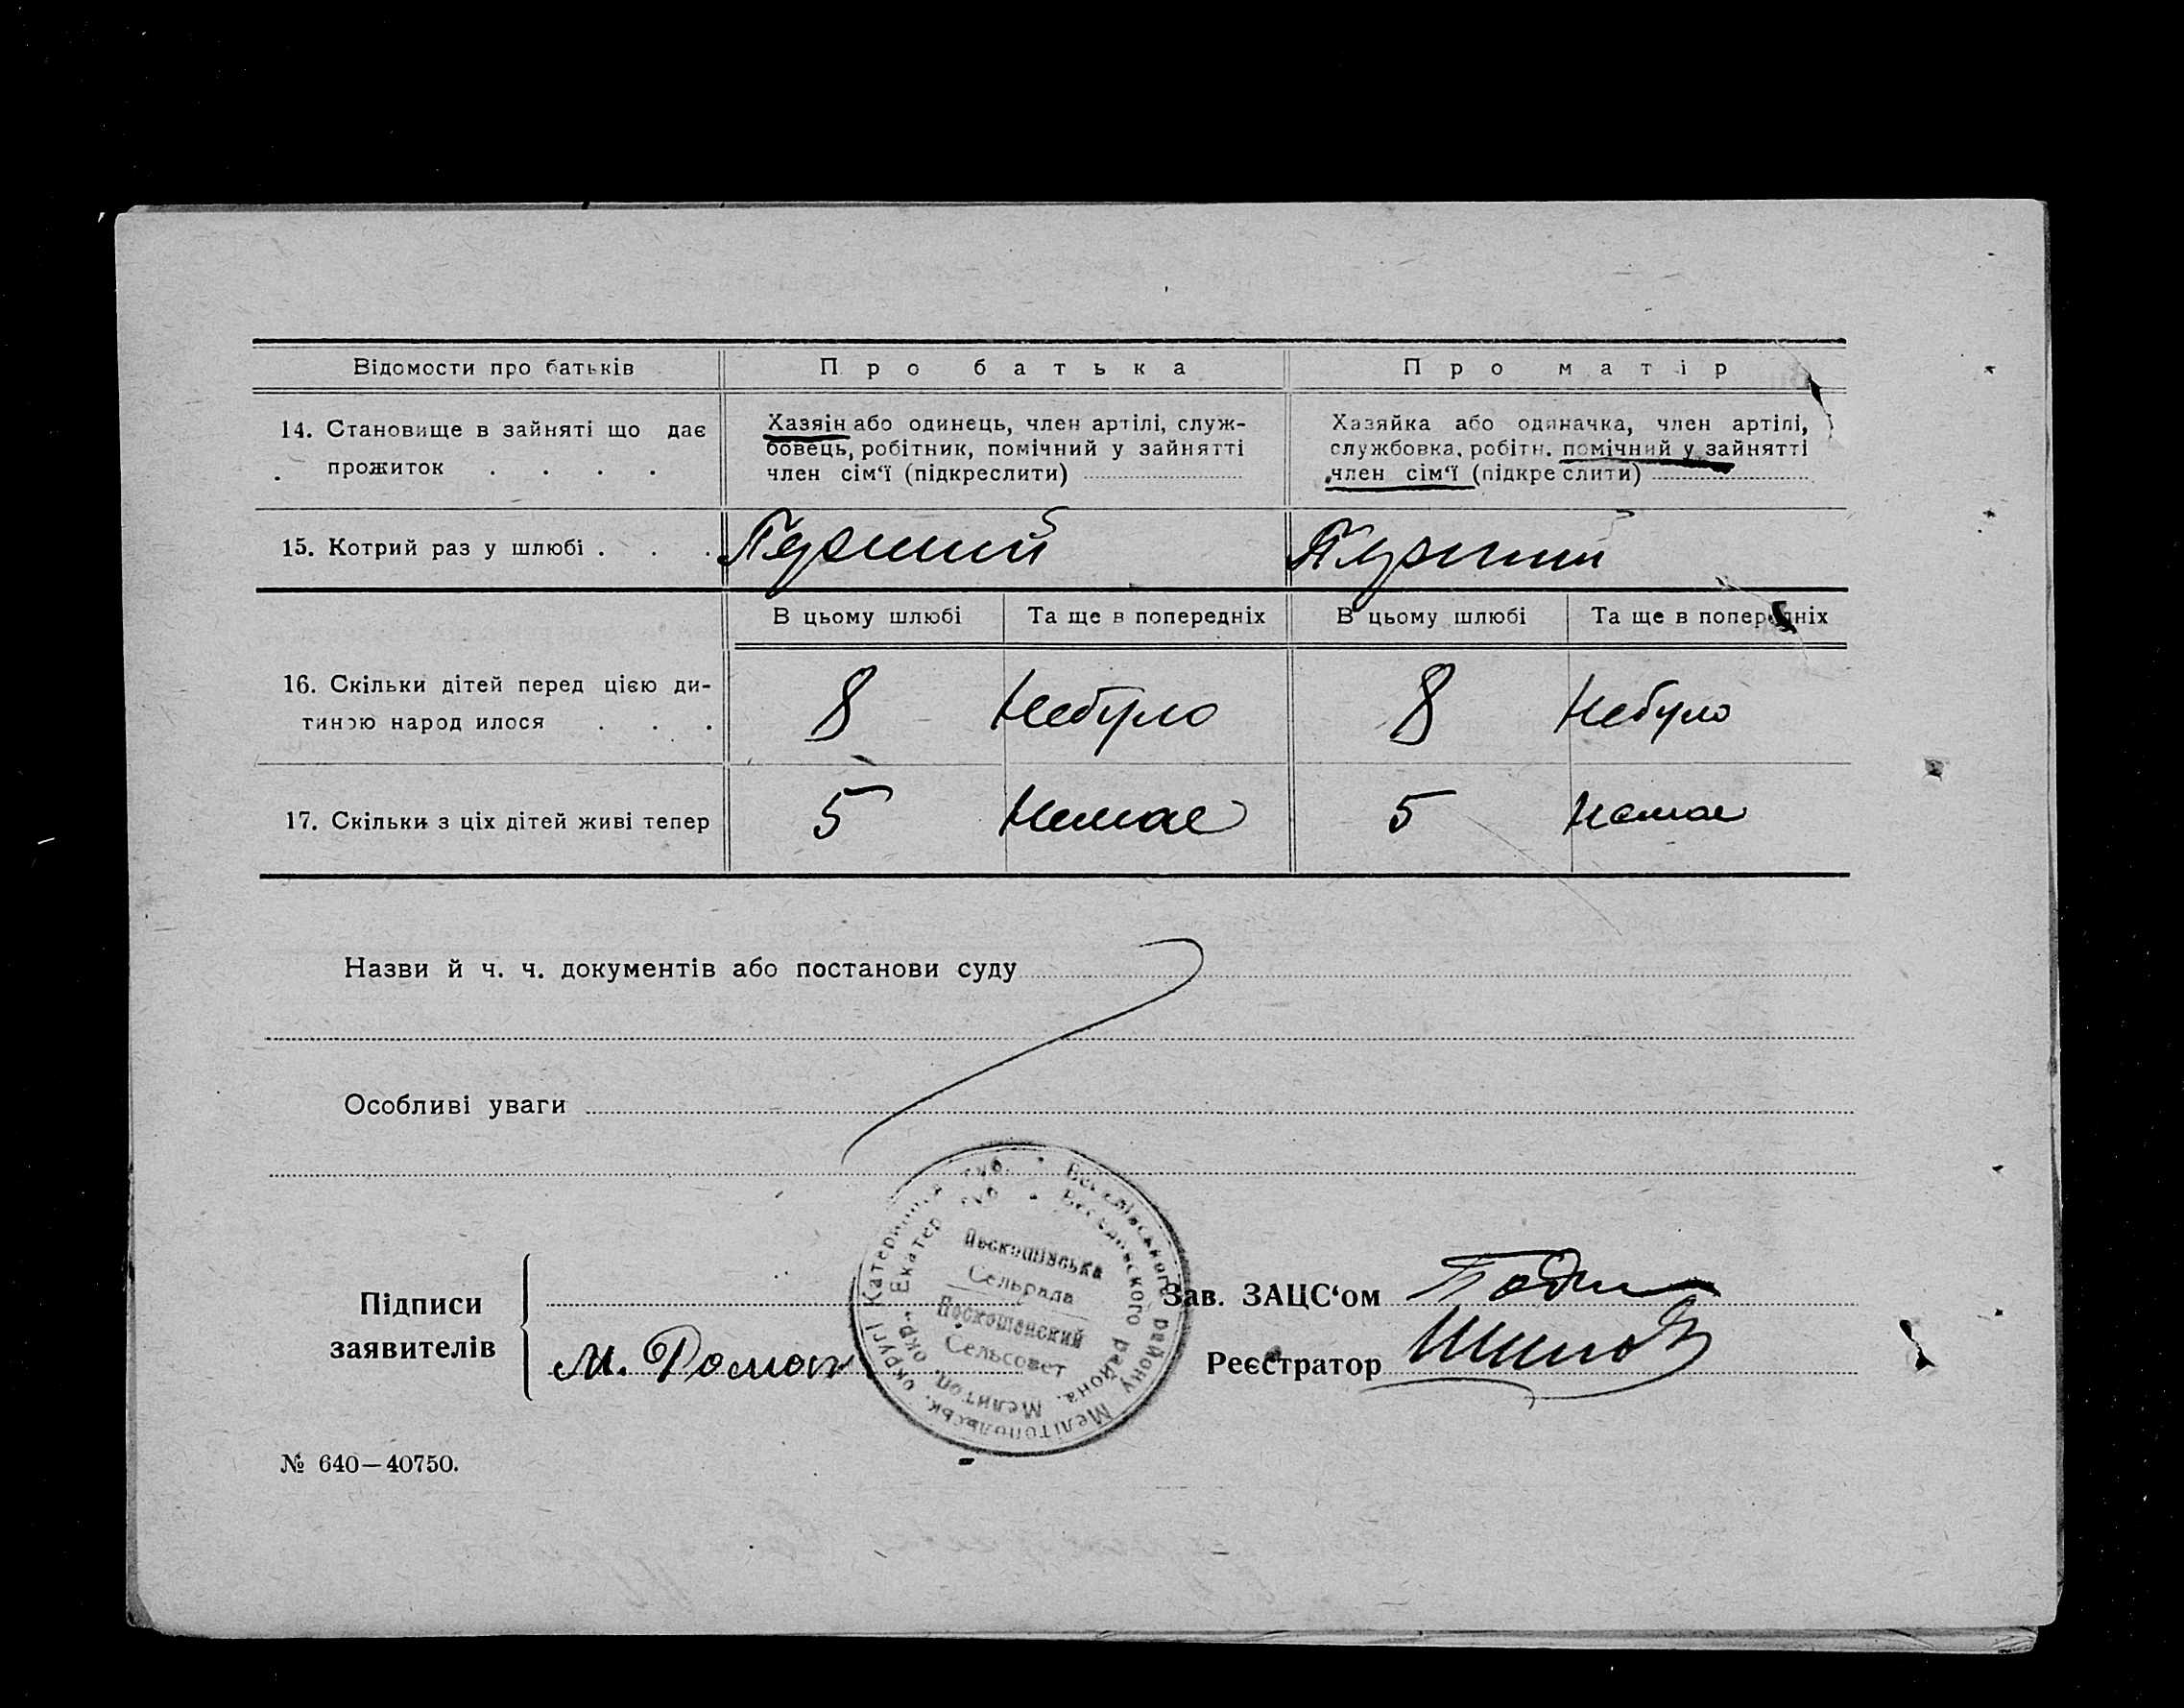 Відомости про батьків
Про батька
Про матір
14. Становище в зайняті що дає
прожиток . . . .
Хазяін або одинець, член артілі, служ-
бовець, робітник, помічний у зайнятті
член сім‘ї (підкреслити)
Хазяйка або одиначка, член артілі,
службовка, робітн. помічний у зайнятті
член сім‘ї (підкреслити)
15. Котрий раз у шлюбі . . .
Перший
Перший
В цьому шлюбі
Та ще в попередніх
В цьому шлюбі
Та ще в попередніх
16. Скільки дітей перед цією ди-
тиною народилося . . .
8
Небуло
8
Небуло
17. Скільки з ціх дітей живі тепер
5
Немае
5
Немае
Назви й ч. ч. документів або постанови суду
Особливі уваги
Підписи
заявителів
М. Роман
Веселівського району Мелітопольськ. округі Катеринослав губ.
района, Мелитоп. окр. Екатер губ
Сельрада
Сельсовет
Зав. ЗАЦС‘ом
Реєстратор
№ 640—40750.